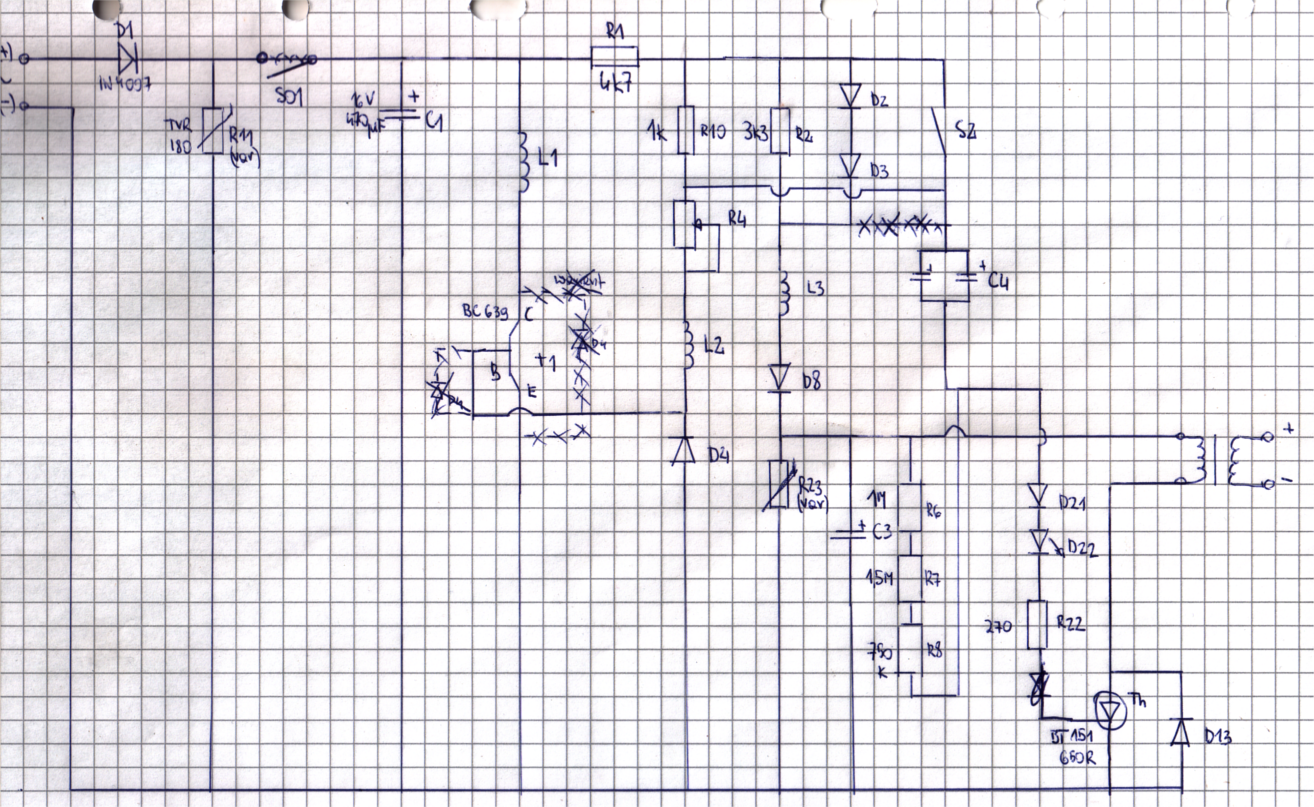 (+)
D1
1N4007
~
(-)
S01
TVR
180
R11
(var)
16V
470µF
+
C1
L1
R1
4k7
1k
R10
3k3
R2
D2
D3
S2
R4
L3
+
+
C4
BC639
C
B
T1
E
D4
L2
D8
D4
R23
(var)
+
C3
1M
R6
1,5M
R7
750
K
R8
D21
D22
270
R22
Th
BT151
650R
D13
+
-